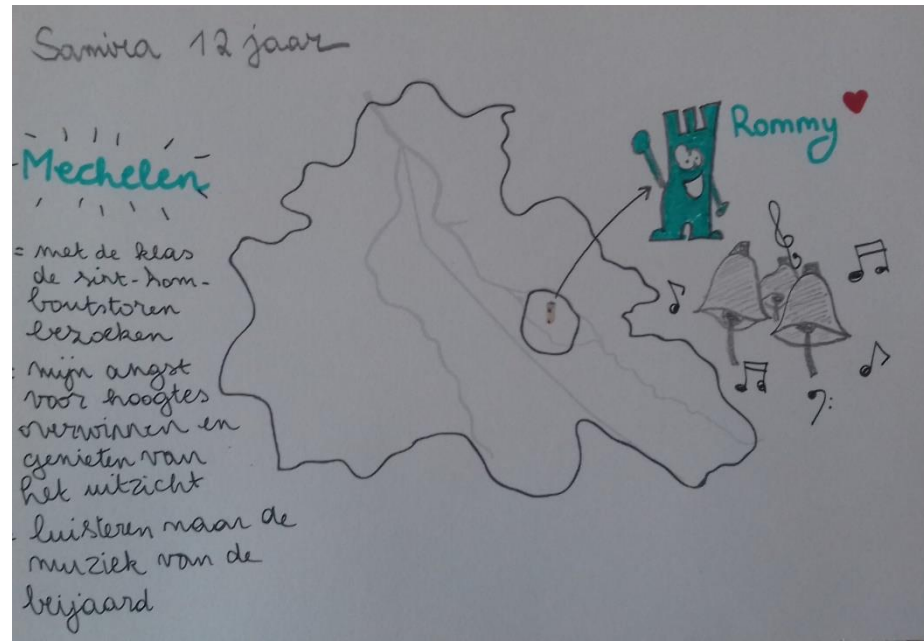 Samira 12 jaar
Mechelen
= met de klas
de sint-rom-
boutstoren
bezoeken
= mijn angst
voor hoogtes
overwinnen en
genieten van
het uitzicht
- luisteren naar de
muziek van de
beijaard
Rommy